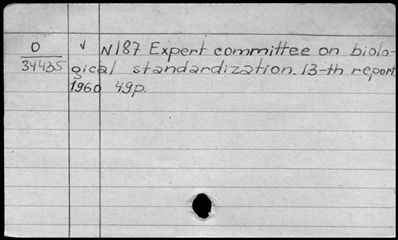 O v N187 Expert committee on biolo-
34435 gical standardization. 13-th report
1960 49p.